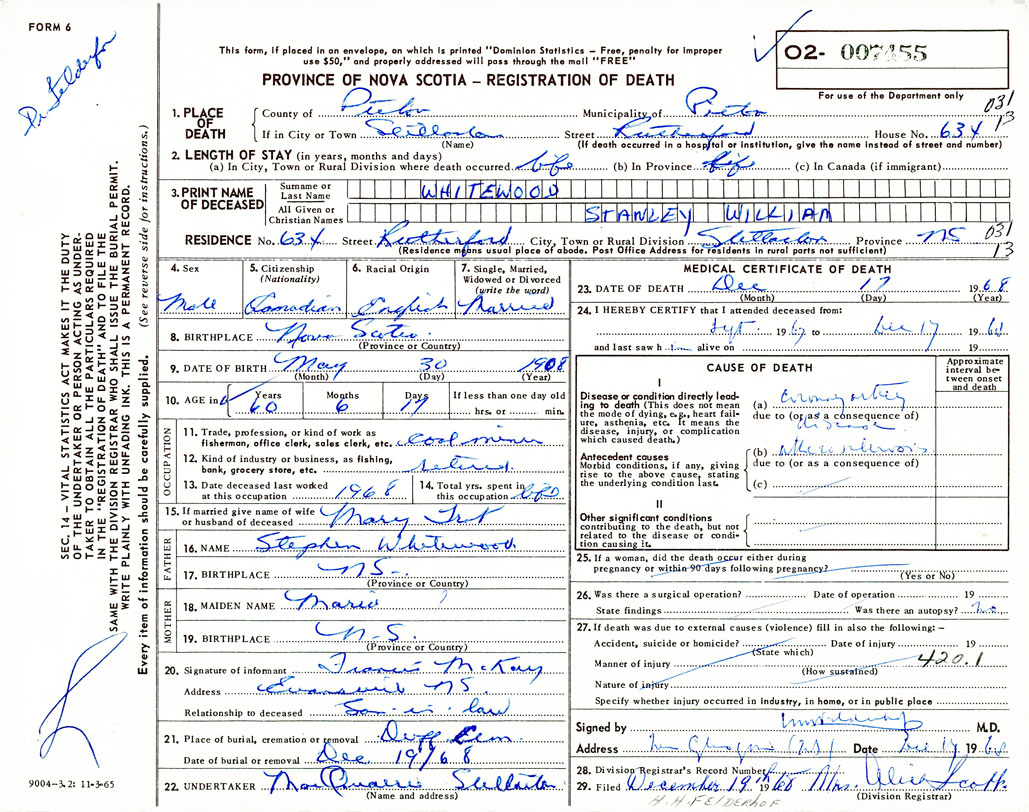 FORM 6
Dr Felderhof
This form, if placed in an envelope, on which is printed "Dominion Statistics – Free, penalty for improper
use $50," and properly addressed will pass through the mail "FREE"
PROVINCE OF NOVA SCOTIA – REGISTRATION OF DEATH
O2- 007455
For use of the Department only
031
13
1. PLACE OF DEATH County of Pictou Municipality of Pictou
If in City or Town Stellarton Street Rutherford House No. 634
(Name) (If death occurred in a hospital or institution, give the name instead of street and number)
2. LENGTH OF STAY (in years, months and days)
(a) In City, Town or Rural Division where death occurred life (b) In Province life (c) In Canada (if immigrant)
3. PRINT NAME OF DECEASED Surname or Last Name WHITEWOOD
All Given or Christian Names STANLEY WILLIAM
RESIDENCE No. 634 Street Rutherford City, Town or Rural Division Stellarton Province NS 031
(Residence means usual place of abode. Post Office Address for residents in rural parts not sufficient) 13
4. Sex 5. Citizenship (Nationality) 6. Racial Origin 7. Single, Married, Widowed or Divorced (write the word)
Male Canadian English Married
8. BIRTHPLACE Nova Scotia
(Province or Country)
9. DATE OF BIRTH May 30 1908
(Month) (Day) (Year)
10. AGE in Years Months Days If less than one day old
60 6 17 hrs. or min.
OCCUPATION
11. Trade, profession, or kind of work as
fisherman, office clerk, sales clerk, etc. coal miner
12. Kind of industry or business, as fishing,
bank, grocery store, etc. retired
13. Date deceased last worked
at this occupation 1968
14. Total yrs. spent in
this occupation life
15. If married give name of wife
or husband of deceased Mary
FATHER
16. NAME Stephen Whitewood
17. BIRTHPLACE NS-
(Province or Country)
MOTHER
18. MAIDEN NAME Maria ?
19. BIRTHPLACE N-S.
(Province or Country)
20. Signature of informant Francis McKay
Address Evansville NS.
Relationship to deceased Son-in-law
21. Place of burial, cremation or removal Duff Cem
Date of burial or removal Dec 19/68
22. UNDERTAKER MacQuarrie Stellarton
(Name and address)
MEDICAL CERTIFICATE OF DEATH
23. DATE OF DEATH Dec 17 1968
(Month) (Day) (Year)
24. I HEREBY CERTIFY that I attended deceased from:
Sept. 1967 to Dec 17 1968
and last saw him alive on 19
CAUSE OF DEATH
Approximate interval between onset and death
I
Disease or condition directly leading to death (This does not mean the mode of dying, e.g., heart failure, asthenia, etc. It means the disease, injury, or complication which caused death.)
(a) coronary artery
due to (or as a consequence of)
disease
Antecedent causes
Morbid conditions, if any, giving rise to the above cause, stating the underlying condition last.
(b) atherosclerosis
due to (or as a consequence of)
(c)
II
Other significant conditions
contributing to the death, but not related to the disease or condition causing it.
25. If a woman, did the death occur either during
pregnancy or within 90 days following pregnancy?
(Yes or No)
26. Was there a surgical operation? Date of operation 19
State findings Was there an autopsy? No
27. If death was due to external causes (violence) fill in also the following:–
Accident, suicide or homicide? Date of injury 19
(State which)
Manner of injury 420.1
(How sustained)
Nature of injury
Specify whether injury occurred in Industry, in home, or in public place
Signed by M.D.
Address New Glasgow (NS) Date Dec 17 1968
28. Division Registrar's Record Number
29. Filed December 19th 1968 Mrs. Alice Scott
(Division Registrar)
H.H. FELDERHOF
SEC. 14 – VITAL STATISTICS ACT MAKES IT THE DUTY
OF THE UNDERTAKER OR PERSON ACTING AS UNDER-
TAKER TO OBTAIN ALL THE PARTICULARS REQUIRED
IN THE "REGISTRATION OF DEATH" AND TO FILE THE
SAME WITH THE DIVISION REGISTRAR WHO SHALL ISSUE THE BURIAL PERMIT.
WRITE PLAINLY WITH UNFADING INK. THIS IS A PERMANENT RECORD.
Every item of information should be carefully supplied. (See reverse side for instructions.)
9004-3.2: 11-3-65